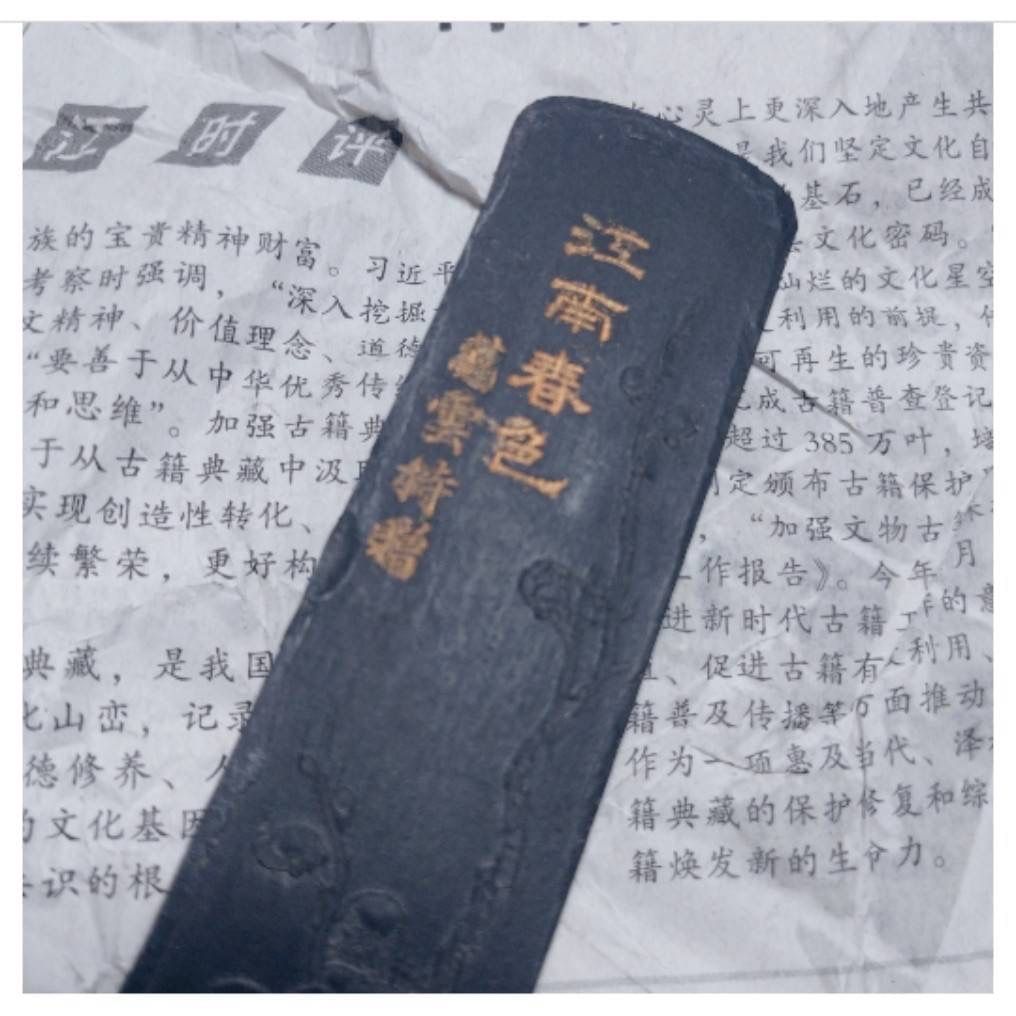 江时评
族的宝贵精神财富。习近平
考察时强调，“深入挖掘
文精神、价值理念、道德
“要善于从中华优秀传
和思维”。加强古籍典
于从古籍典藏中汲
实现创造性转化、
续繁荣，更好构
典藏，是我国
化山峦，记录
德修养、
的文化基因
识的根
江南春色
心灵上更深入地产生共
是我们坚定文化自
基石，已经成
文化密码。
灿烂的文化星空
利用的前提，
可再生的珍贵资
成古籍普查登记
超过385万叶，
定颁布古籍保护
，“加强文物古
工作报告》。今年 月
进新时代古籍工作的意
、促进古籍有 利用、
籍普及传播等方面推动
作为一项惠及当代、泽
籍典藏的保护修复和综
籍焕发新的生命力。